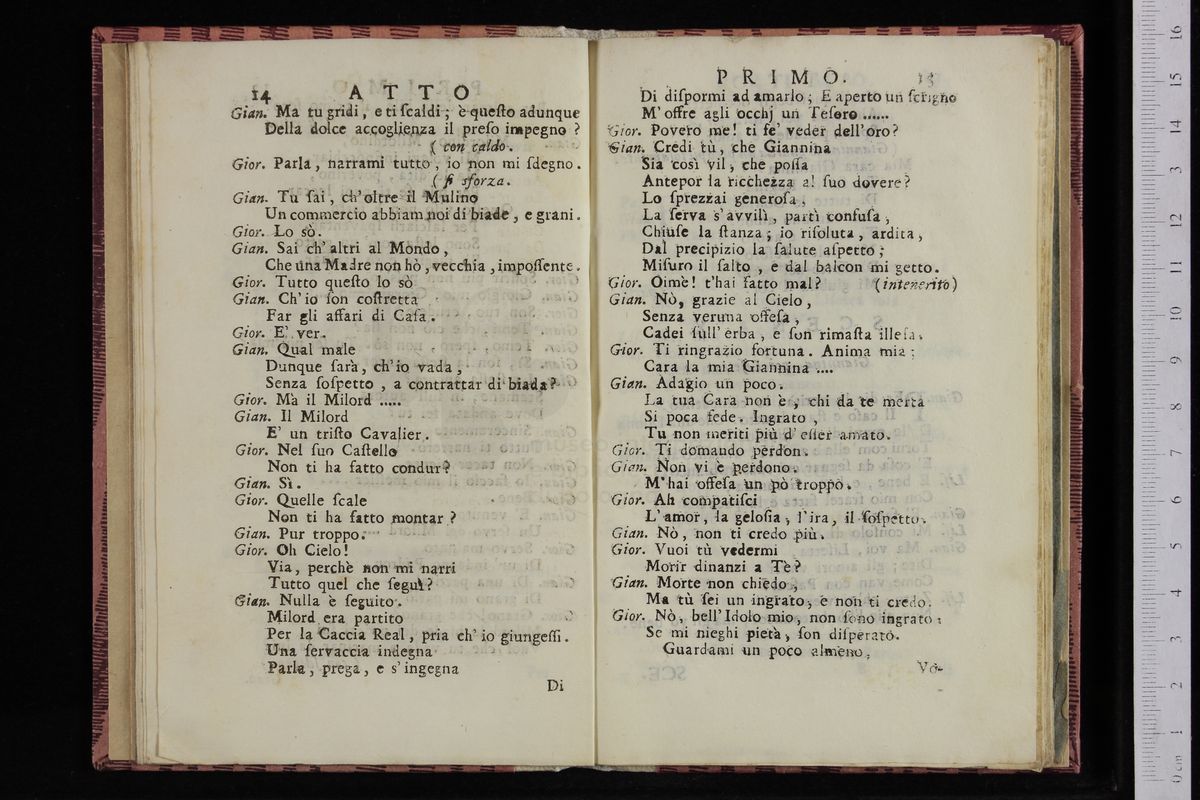 14 ATTO
Gian. Ma tu gridi, e ti ſcaldi; è queſto adunque
Della dolce accoglienza il preſo impegno?
( con caldo.
Gior. Parla, narrami tutto, io non mi ſdegno.
( ſi sforza.
Gian. Tu ſai, ch'oltre il Mulino
Un commercio abbiam noi di biade, e grani.
Gior. Lo sò.
Gian. Sai ch'altri al Mondo,
Che una Madre non hò, vecchia, impoſſente.
Gior. Tutto queſto lo sò
Gian. Ch'io ſon coſtretta
Far gli affari di Caſa.
Gior. E' ver.
Gian. Qual male
Dunque ſarà, ch'io vada,
Senza ſoſpetto, a contrattar di biada?
Gior. Ma il Milord .....
Gian. Il Milord
E' un triſto Cavalier.
Gior. Nel ſuo Caſtello
Non ti ha fatto condur?
Gian. Sì.
Gior. Quelle ſcale
Non ti ha fatto montar?
Gian. Pur troppo.
Gior. Oh Cielo!
Via, perchè non mi narri
Tutto quel che ſeguì?
Gian. Nulla è ſeguito.
Milord era partito
Per la Caccia Real, pria ch'io giungeſſi.
Una ſervaccia indegna
Parla, prega, e s'ingegna
Di
PRIMO. 15
Di diſpormi ad amarlo; E aperto un ſcrigno
M'offre agli occhj un Teſoro ......
Gior. Povero me! ti fe' veder dell'oro?
Gian. Credi tù, che Giannina
Sia così vil, che poſſa
Antepor la ricchezza al ſuo dovere?
Lo ſprezzai generoſa,
La ſerva s'avvilì, partì confuſa,
Chiuſe la ſtanza; io riſoluta, ardita,
Dal precipizio la ſalute aſpetto;
Miſuro il ſalto, e dal balcon mi getto.
Gior. Oimè! t'hai fatto mal? (intenerito)
Gian. Nò, grazie al Cielo,
Senza veruna offeſa,
Cadei ſull'erba, e ſon rimaſta illeſa.
Gior. Ti ringrazio fortuna. Anima mia;
Cara la mia Giannina ....
Gian. Adagio un poco.
La tua Cara non è, chi da te merta
Si poca fede. Ingrato,
Tu non meriti più d'eſſer amato.
Gior. Ti domando perdon.
Gian. Non vi è perdono.
M'hai offeſa un pò troppo.
Gior. Ah compatiſci
L'amor, la geloſia, l'ira, il ſoſpetto.
Gian. Nò, non ti credo più.
Gior. Vuoi tù vedermi
Morir dinanzi a Tè?
Gian. Morte non chiedo,
Ma tù ſei un ingrato, e non ti credo.
Gior. Nò, bell'Idolo mio, non ſono ingrato;
Se mi nieghi pietà, ſon diſperato.
Guardami un poco almeno,
Vo-